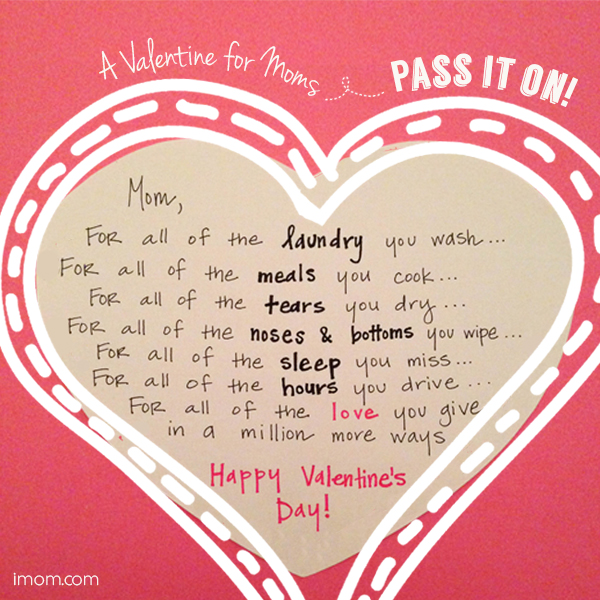 A Valentine for Moms
PASS IT ON!
Mom,
FOR all of the laundry you wash...
FOR all of the meals you cook...
FOR all of the tears you dry...
FOR all of the noses & bottoms you wipe...
FOR all of the sleep you miss...
FOR all of the hours you drive...
FOR all of the love you give
in a million more ways
Happy Valentine's
Day!
imom.com